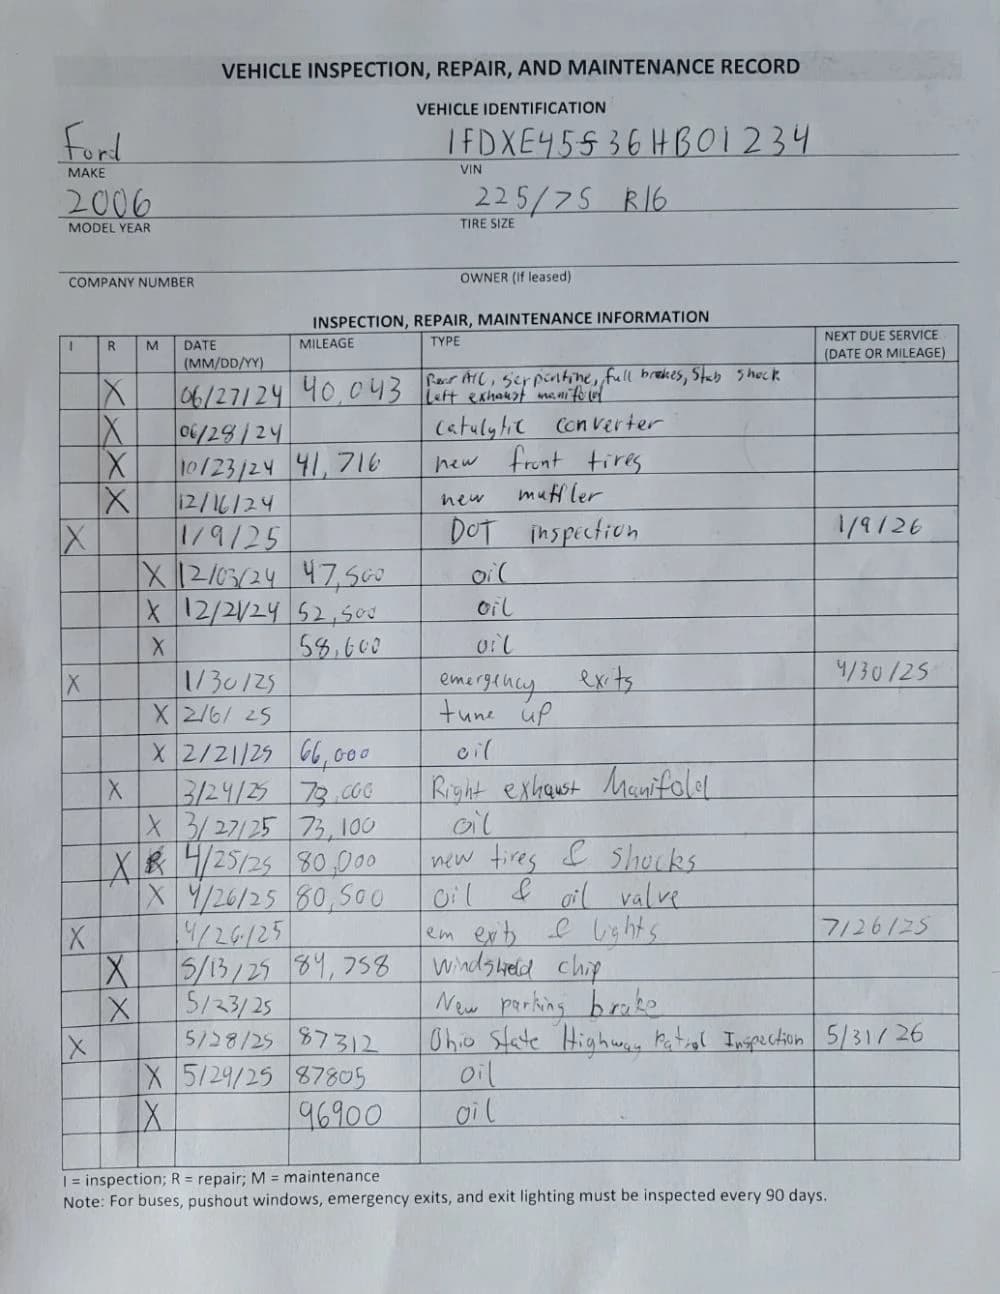 VEHICLE INSPECTION, REPAIR, AND MAINTENANCE RECORD
VEHICLE IDENTIFICATION
Ford 1FDXE45S36HB01234
MAKE VIN
2006 225/75 R16
MODEL YEAR TIRE SIZE
COMPANY NUMBER OWNER (if leased)
INSPECTION, REPAIR, MAINTENANCE INFORMATION
I R M DATE (MM/DD/YY) MILEAGE TYPE NEXT DUE SERVICE (DATE OR MILEAGE)
X 06/27/24 40,043 Rear A/C, serpentine, full brakes, Stab shock
left exhaust manifold
X 06/28/24 catulytic converter
X 10/23/24 41,716 new front tires
X 12/16/24 new muffler
X 1/9/25 DOT inspection 1/9/26
X 12/03/24 47,500 oil
X 12/21/24 52,500 oil
X 58,600 oil
X 1/30/25 emergency exits 4/30/25
X 2/6/25 tune up
X 2/21/25 66,000 oil
X 3/24/25 73,000 Right exhaust Manifold
X 3/27/25 73,100 oil
X 4/25/25 80,000 new tires & shocks
X 4/26/25 80,500 oil & oil valve
X 4/26/25 em exits & lights 7/26/25
X 5/13/25 84,758 Windshield chip
X 5/23/25 New parking brake
X 5/28/25 87312 Ohio State Highway Patrol Inspection 5/31/26
X 5/29/25 87805 oil
X 96900 oil
I = inspection; R = repair; M = maintenance
Note: For buses, pushout windows, emergency exits, and exit lighting must be inspected every 90 days.